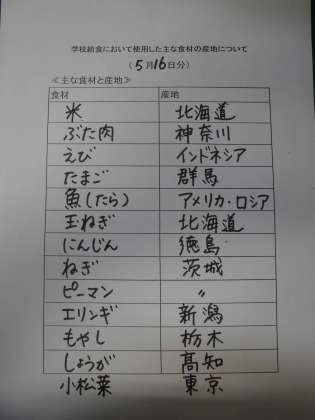 学校給食において使用した主な食材の産地について
（5月16日分）
≪主な食材と産地≫
食材 産地
米 北海道
ぶた肉 神奈川
えび インドネシア
たまご 群馬
魚(たら) アメリカ・ロシア
玉ねぎ 北海道
にんじん 徳島
ねぎ 茨城
ピーマン 〃
エリンギ 新潟
もやし 栃木
しょうが 高知
小松菜 東京